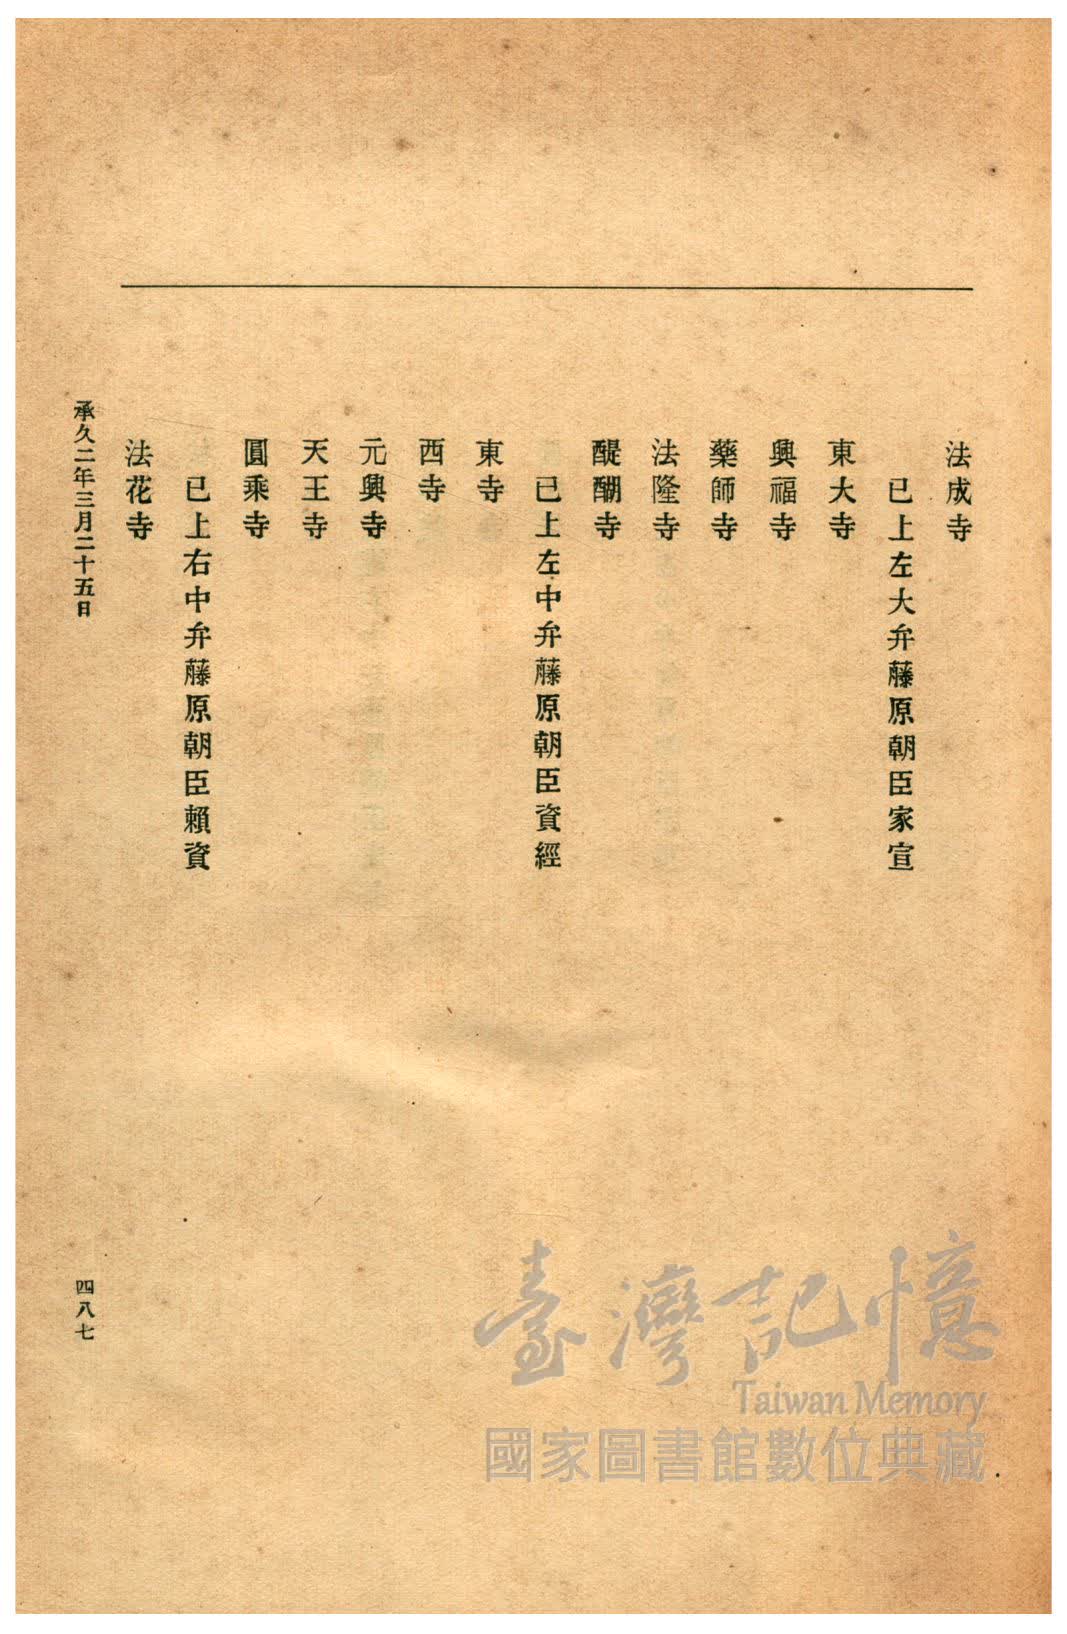 法成寺
已上左大弁藤原朝臣家宣
東大寺
興福寺
藥師寺
法隆寺
醍醐寺
已上左中弁藤原朝臣資經
東寺
西寺
元興寺
天王寺
圓乘寺
已上右中弁藤原朝臣賴資
法花寺
承久二年三月二十五日
四八七
臺灣記憶
Taiwan Memory
國家圖書館數位典藏